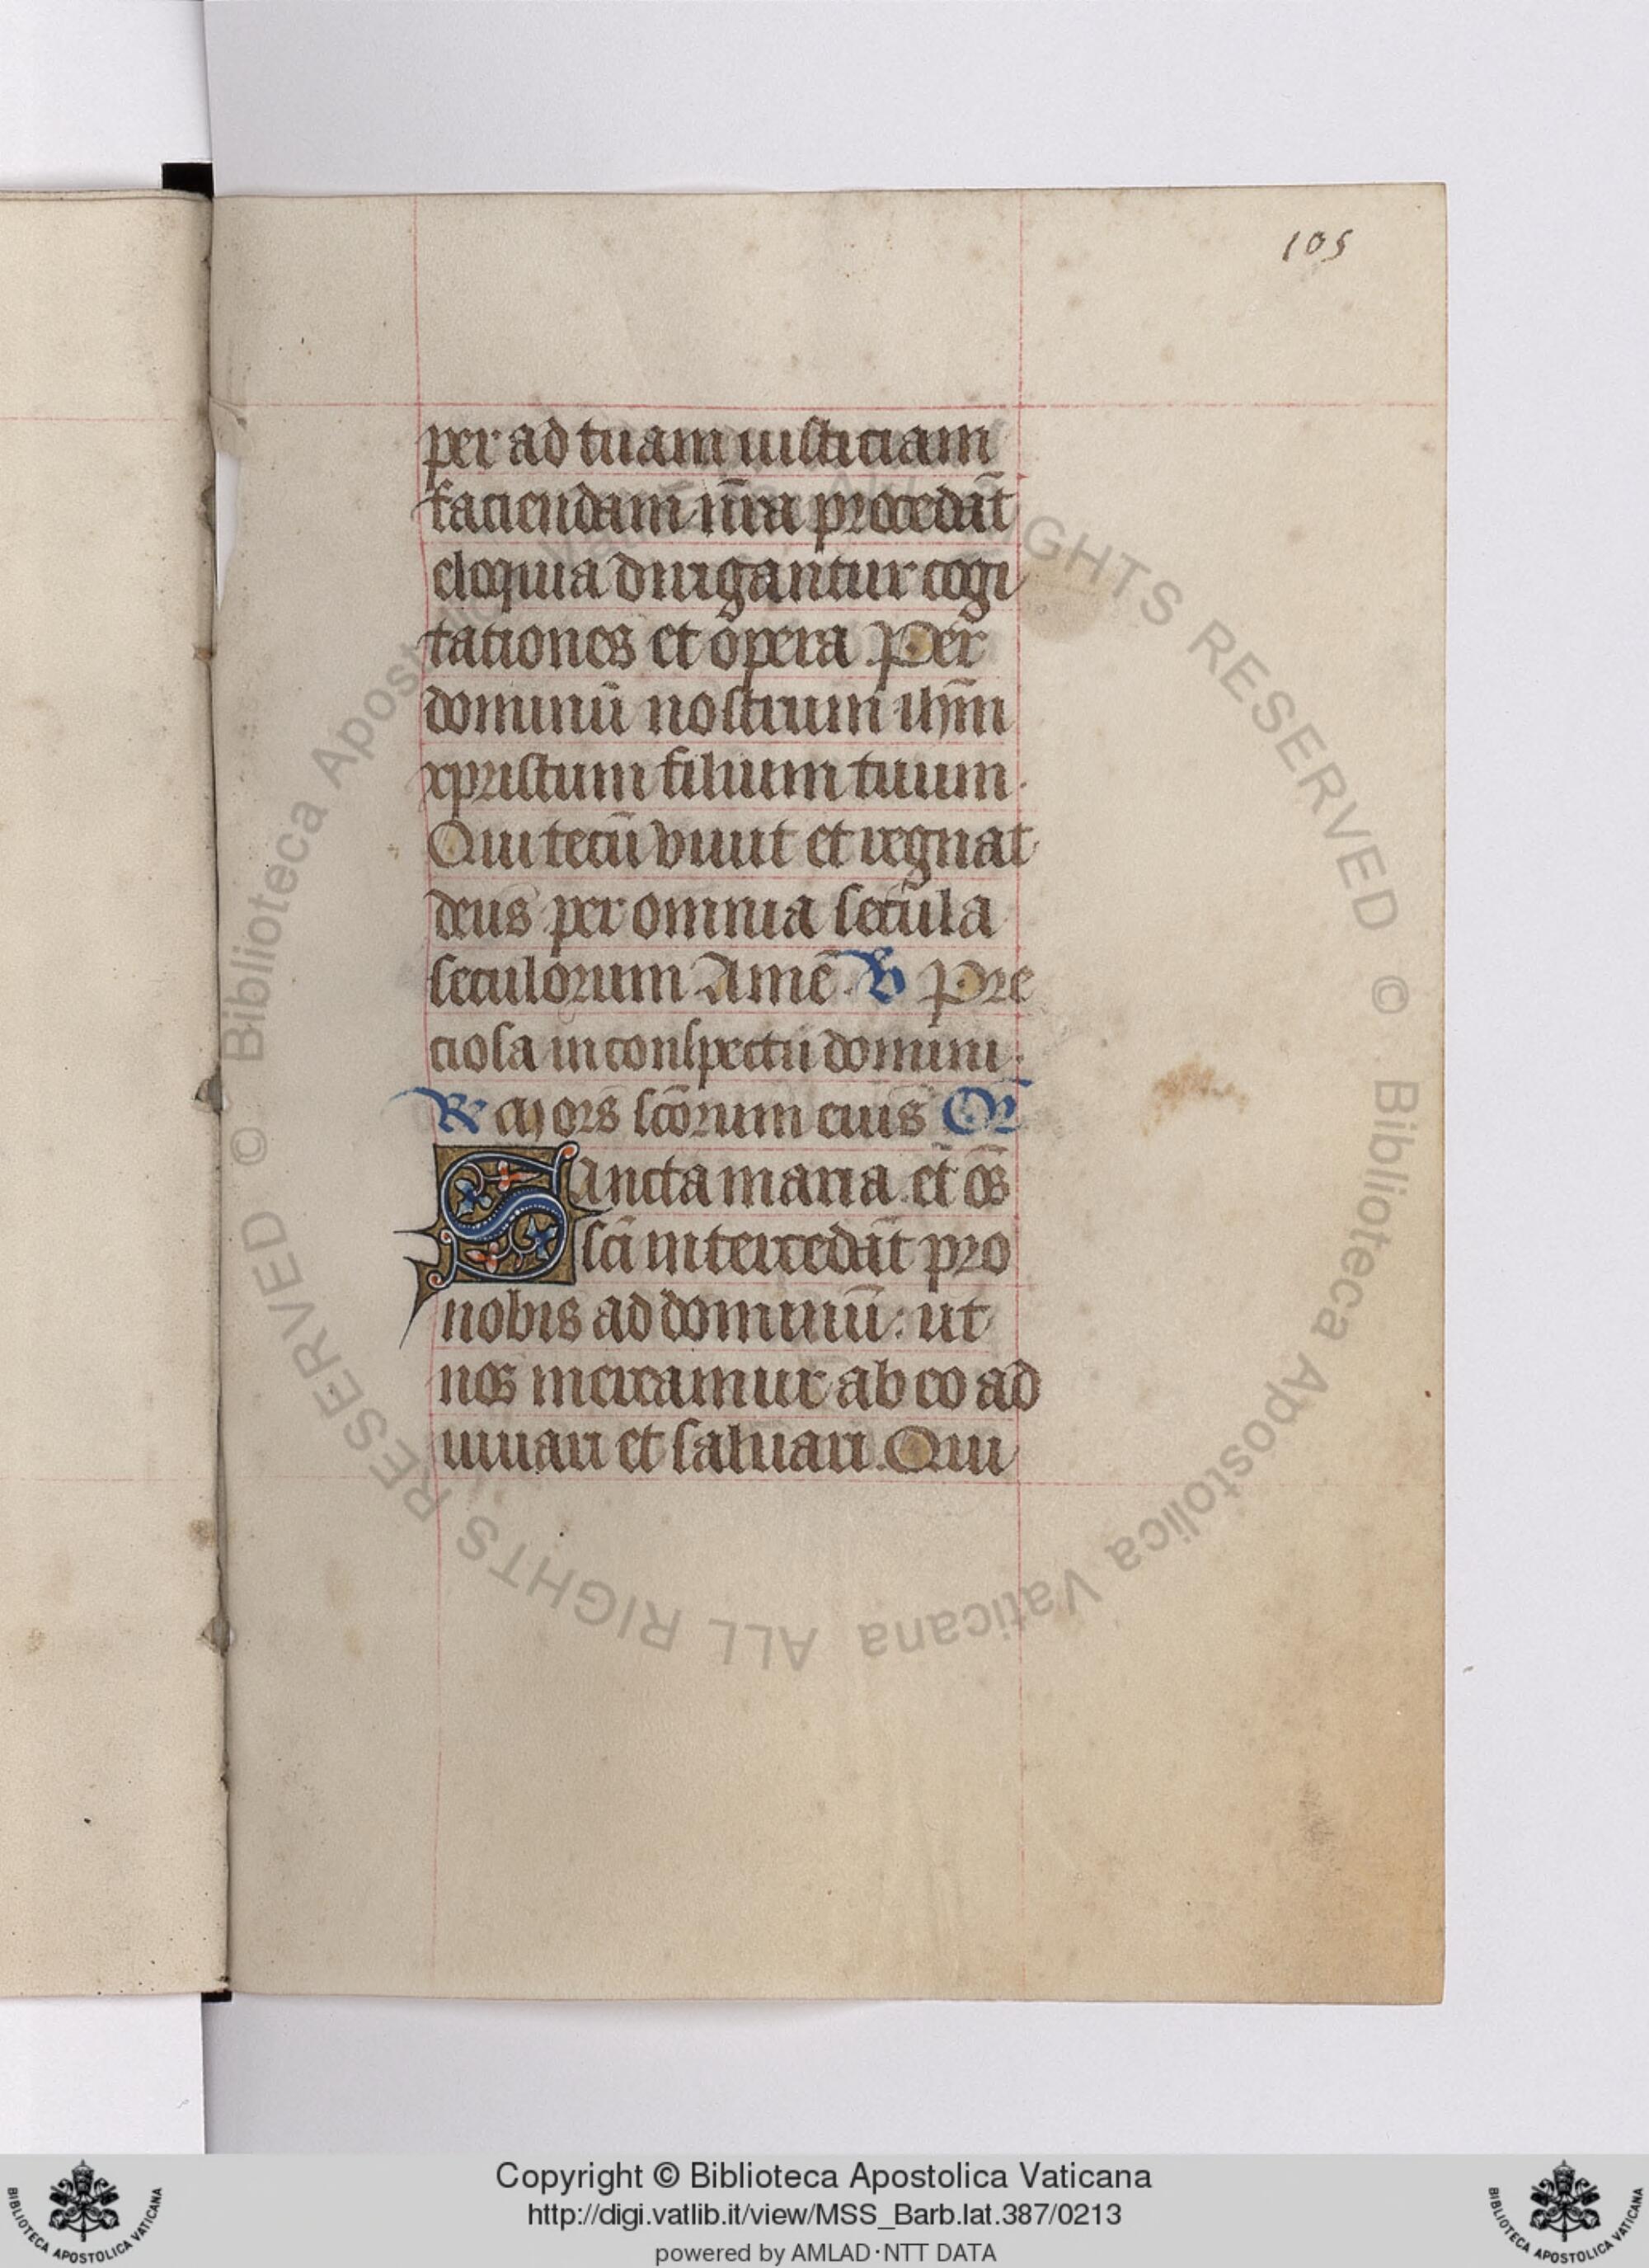 105
per ad tuam iusticiam
faciendam nr̄a procedāt
eloquia dirigantur cogi
tationes et opera Per
dominū nostrum ihm̄
xpristum filium tuum.
Qui tecū viuit et regnat
deus per omnia secula
seculorum Amē. V Pre
ciosa in conspectu domini.
R Mors sc̄orum eius Or̄
Sancta maria et om̄s
sc̄i intercedāt pro
nobis ad dominū: ut
nos mereamur ab eo ad
iuuari et saluari. Qui
© Biblioteca Apostolica Vaticana ALL RIGHTS RESERVED © Biblioteca Apostolica Vaticana ALL RIGHTS RESERVED
Copyright © Biblioteca Apostolica Vaticana
http://digi.vatlib.it/view/MSS_Barb.lat.387/0213
powered by AMLAD·NTT DATA
BIBLIOTECA APOSTOLICA VATICANA
BIBLIOTECA APOSTOLICA VATICANA